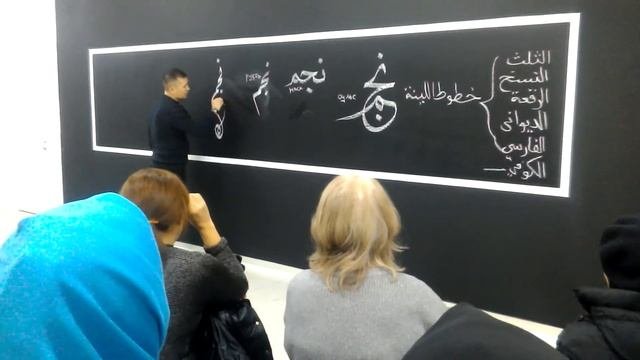 الثلث
النسخ
الرقعة
الديواني
الفارسي
الكوفي
خطوط اللينة
نجم
نجم
НАСХ
نجم
نجم